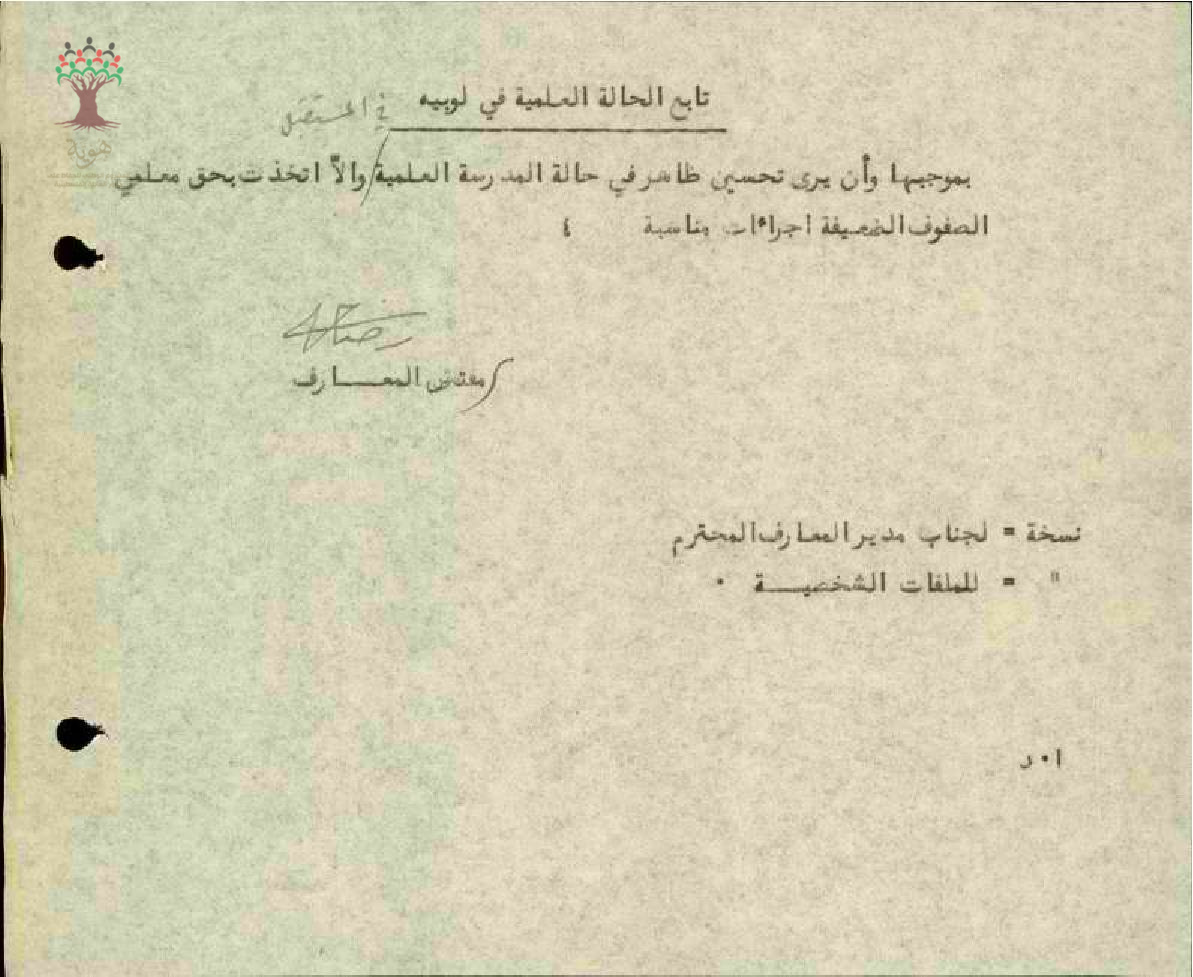 هوية
تابع الحالة العلمية في لوبيه
في المستقبل
بموجبها وأن يرى تحسين ظاهر في حالة المدرسة العلمية/والاّ اتخذت بحق معلمي
الصفوف الضعيفة اجراءات مناسبة ٤
مفتش المعـــارف
نسخة = لجناب مدير المعارف المحترم
" = للملفات الشخصيـــة ٠
ا٠د